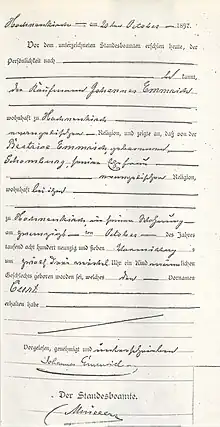 Hachenburg am 20ten October 1897.
Vor dem unterzeichneten Standesbeamten erschien heute, der
Persönlichkeit nach
kannt,
der Kaufmann Johannes Emmerich
wohnhaft zu
evangelischer Religion, und zeigte an, daß von der
Beatrice Emmerich geborenen
Schomburg, seiner Ehefrau
evangelischer Religion,
wohnhaft bei ihm
zu in seiner Wohnung
am zwanzigsten October des Jahres
tausend acht hundert neunzig und sieben Vormittags
um drei viertel Uhr ein Kind männlichen
Geschlechts geboren worden sei, welches den Vornamen
Curt
erhalten habe
Vorgelesen, genehmigt und unterschrieben
Johannes Emmerich
Der Standesbeamte.